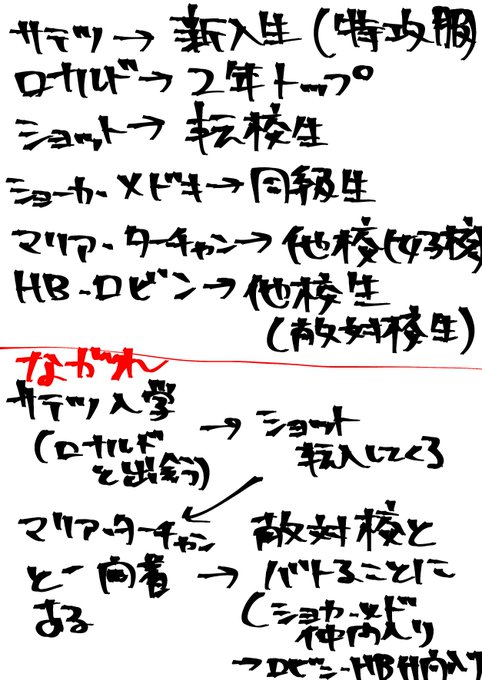 サテツ→新入生(特攻服
ロナルド→2年トップ
ショット→転校生
ショーカ・メドキ→同級生
マリア・ターチャン→他校(女子校)
HB・ロビン→他校生
(敵対校生)
ながれ
サテツ入学
(ロナルド
と出会う)
→ショット
転入してくる
マリア・ターチャン
と一悶着
ある
→敵対校と
バトることに
(ショーカ・メド
仲間入り
→ロビン・HB仲間入り